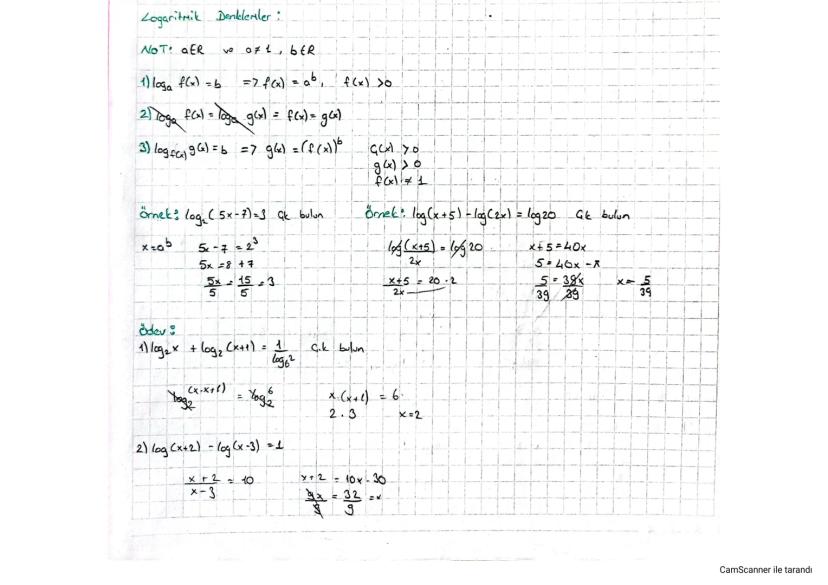 Logaritmik Denklemler :
NOT: a∈R ve a≠1, b∈R
1) logₐ f(x) = b => f(x) = aᵇ, f(x) >0
2) logₐ f(x) = logₐ g(x) = f(x) = g(x)
3) log_f(x) g(x) = b => g(x) = (f(x))ᵇ G(x) >0
g(x) > 0
f(x) ≠ 1
Örnek: log₂(5x-7)=3 Çk bulun
x=aᵇ 5x-7 = 2³
5x = 8 + 7
5x/5 = 15/5 = 3
Örnek: log(x+5) - log(2x) = log20 Çk bulun
log (x+5)/2x = log 20 x+5 = 40x
5 = 40x - x
(x+5)/2x = 20 · 2 5/39 = 39x/39 x = 5/39
Ödev:
1) log₂x + log₂(x+1) = 1/log₆2 Ç.k bulun
log₂(x·x+1) = log₂6 x.(x+1) = 6
2 . 3 x=2
2) log(x+2) - log(x-3) = 1
(x+2)/(x-3) = 10 x+2 = 10x - 30
9x/9 = 32/9 = x
CamScanner ile tarandı